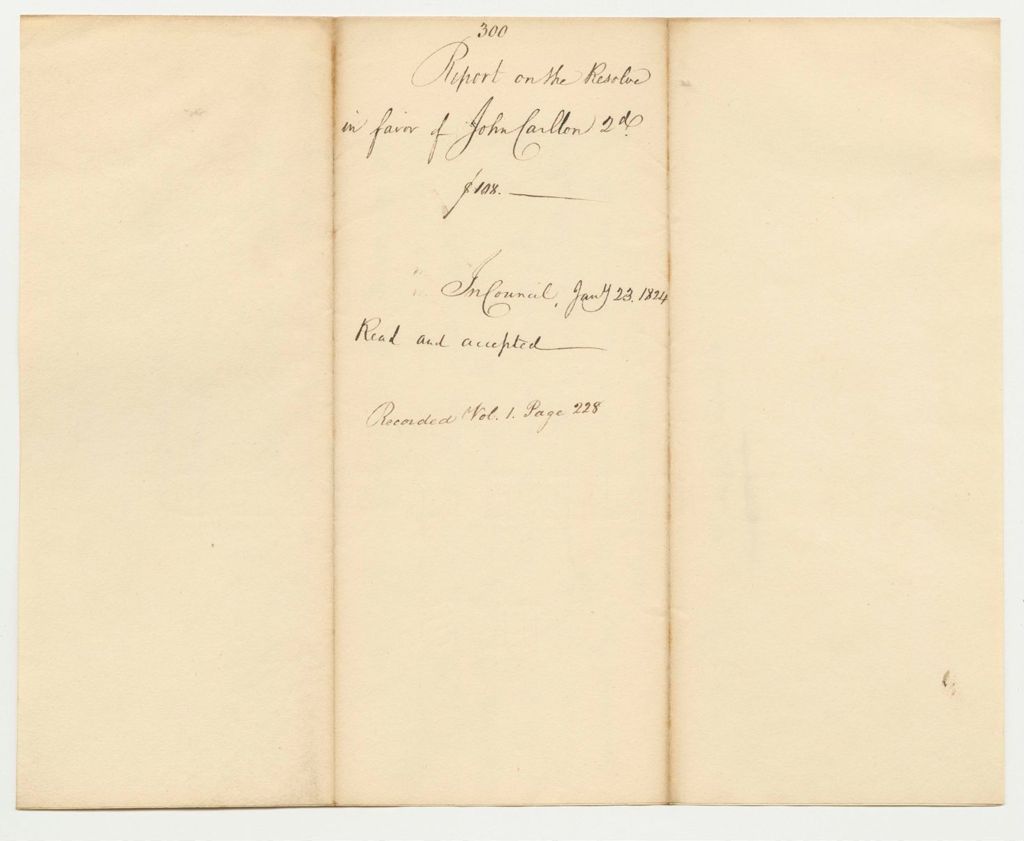 300
Report on the Resolve
in favor of John Carlton 2d.
$108.
In Council, Jany 23. 1824
Read and accepted
Recorded Vol. 1. Page 228